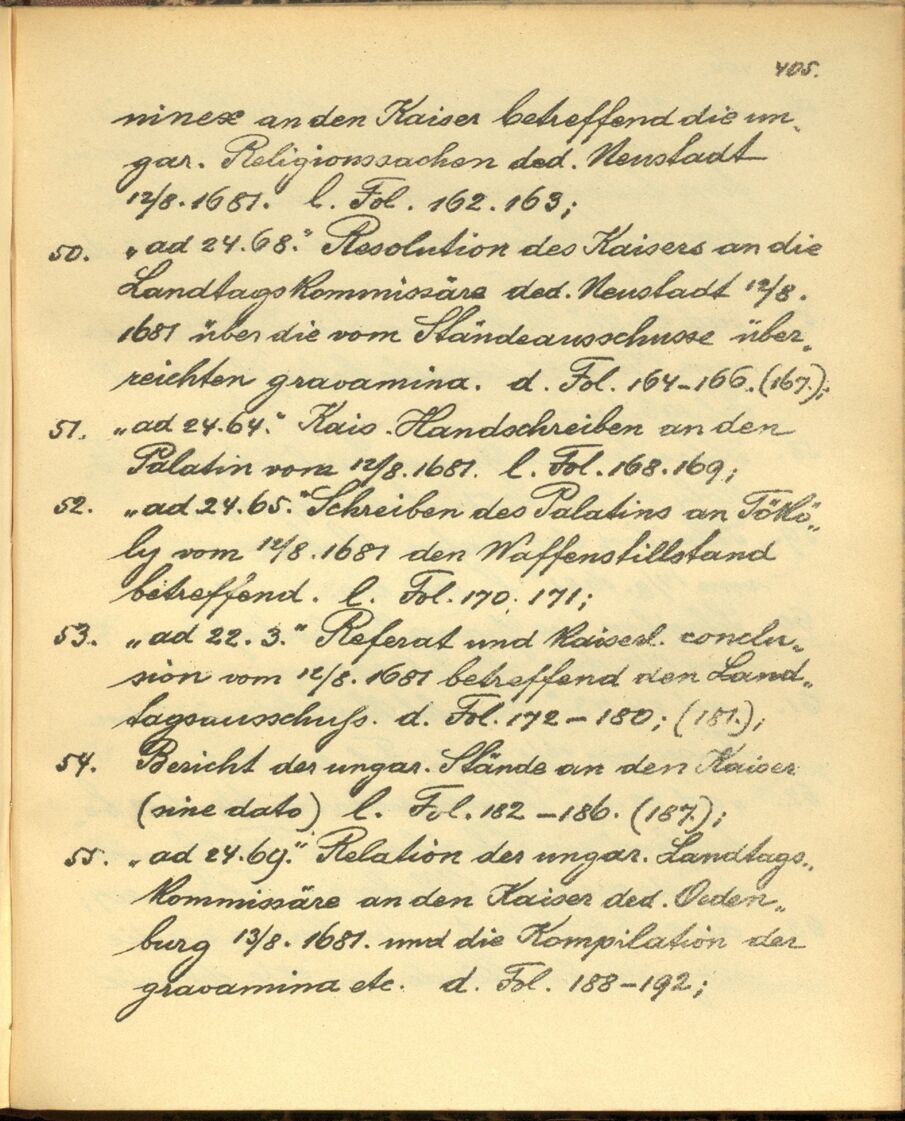 405.
ninex an den Kaiser betreffend die un„
gar. Religionssachen ded. Neustadt
12/8. 1681. l. Fol. 162. 163;
50. „ad 24.68.“ Resolution des Kaisers an die
Landtagskommissäre ded. Neustadt 12/8.
1681 über die vom Ständeausschusse über„
reichten gravamina. d. Fol. 164–166. (167.);
51. „ad 24.64.“ Kais. Handschreiben an den
Palatin vom 12/8. 1681. l. Fol. 168. 169;
52. „ad 24.65.“ Schreiben des Palatins an Tökö„
ly vom 12/8. 1681 den Waffenstillstand
betreffend. l. Fol. 170. 171;
53. „ad 22.3.“ Referat und kaiserl. conclu„
sion vom 12/8. 1681 betreffend den Land„
tagsausschuß. d. Fol. 172–180; (181.);
54. Bericht der ungar. Stände an den Kaiser
(sine dato) l. Fol. 182–186. (187.);
55. „ad 24.69.“ Relation der ungar. Landtags„
kommissäre an den Kaiser ded. Oeden„
burg 13/8. 1681. und die Kompilation der
gravamina etc. d. Fol. 188–192;